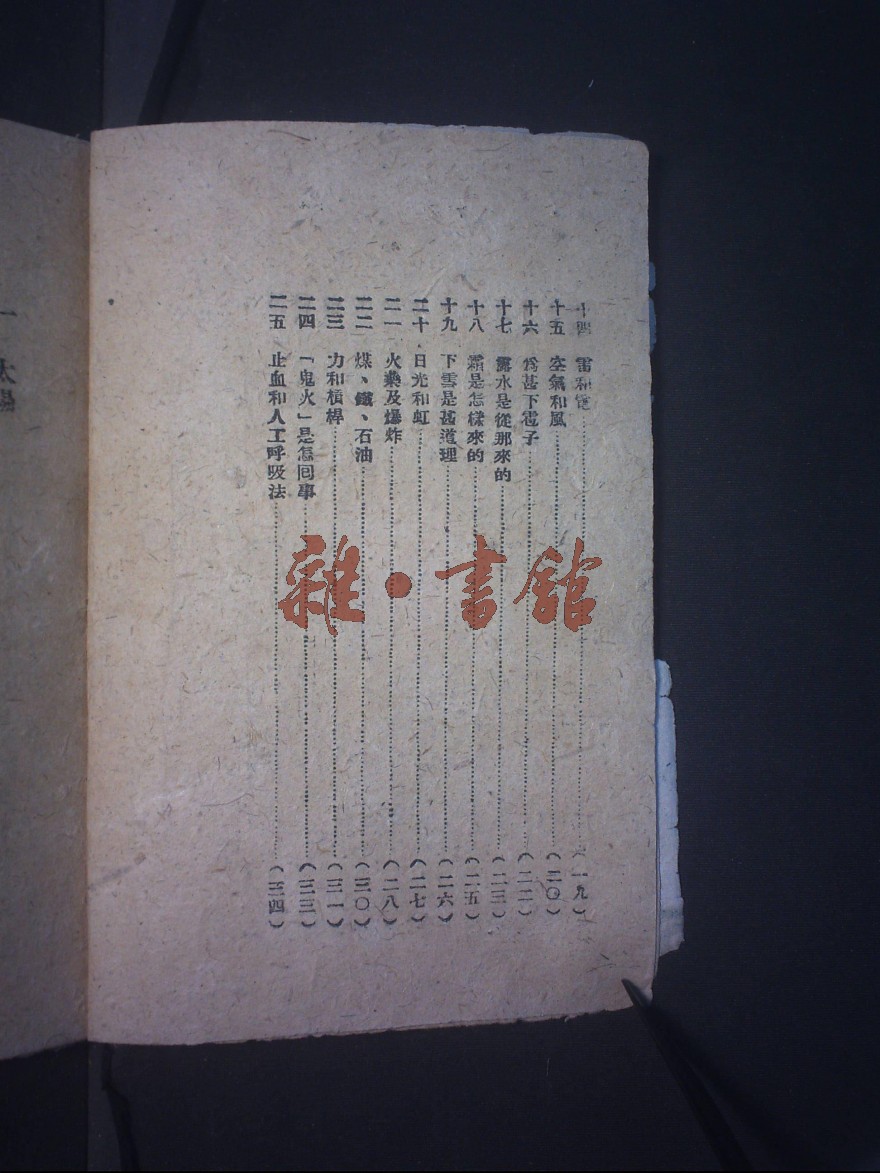 十四 雷和電……(一九)
十五 空氣和風……(二〇)
十六 爲甚下雹子……(二二)
十七 露水是從那來的……(二三)
十八 霜是怎樣來的……(二五)
十九 下雪是甚道理……(二六)
二十 日光和虹……(二七)
二一 火藥及爆炸……(二八)
二二 煤、鐵、石油……(三〇)
二三 力和槓桿……(三一)
二四 「鬼火」是怎回事……(三三)
二五 止血和人工呼吸法……(三四)
雜·書館
一 太陽